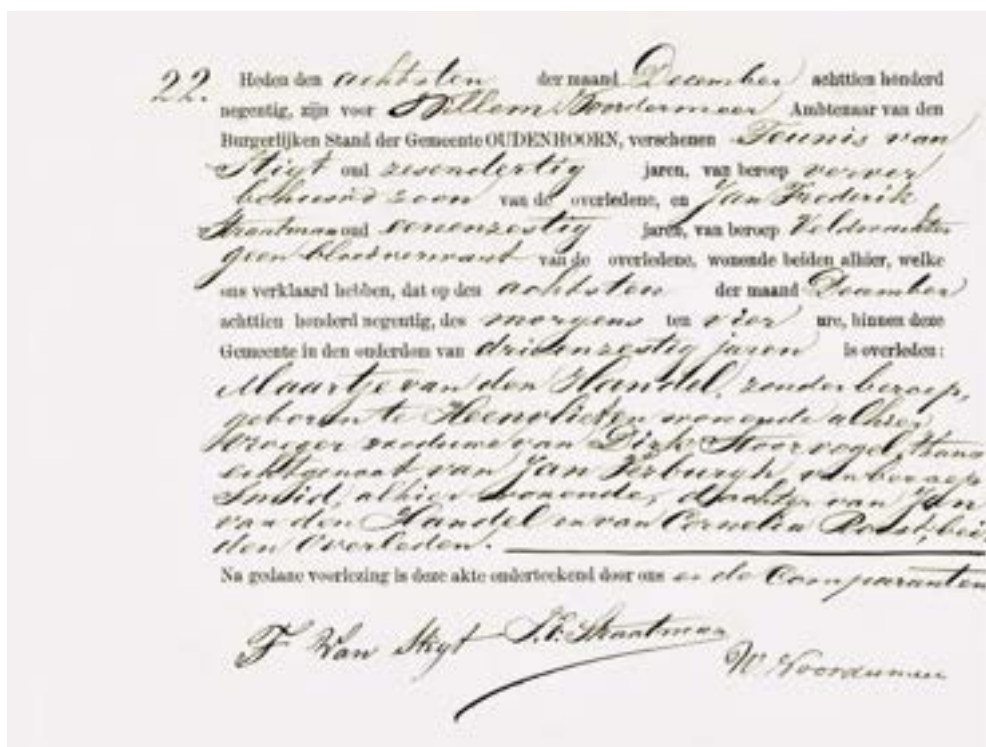 22. Heden den achtsten der maand December achttien honderd
negentig, zijn voor Willem Noordermeer Ambtenaar van den
Burgerlijken Stand der Gemeente OUDENHOORN, verschenen Teunis van
Stigt oud zesendertig jaren, van beroep verver
behuwd zoon van de overledene, en Jan Frederik
Straatman oud eenenzestig jaren, van beroep Veldwachter
geen bloedverwant van de overledene, wonende beiden alhier, welke
ons verklaard hebben, dat op den achtsten der maand December
achttien honderd negentig, des morgens ten vier ure, binnen deze
Gemeente in den ouderdom van drieenzestig jaren is overleden:
Maartje van den Handel, zonder beroep,
geboren te Heenvliet en wonende alhier
vroeger weduwe van Dirk Stoorvogel, thans
echtgenoot van Jan Verburgh, van beroep
Smid, alhier wonende, dochter van Jan
van den Handel en van Cornelia Roost, bei
den overleden.
Na gedane voorlezing is deze akte onderteekend door ons en de Comparanten
T Van Stigt J.F. Straatman
W Noordermeer